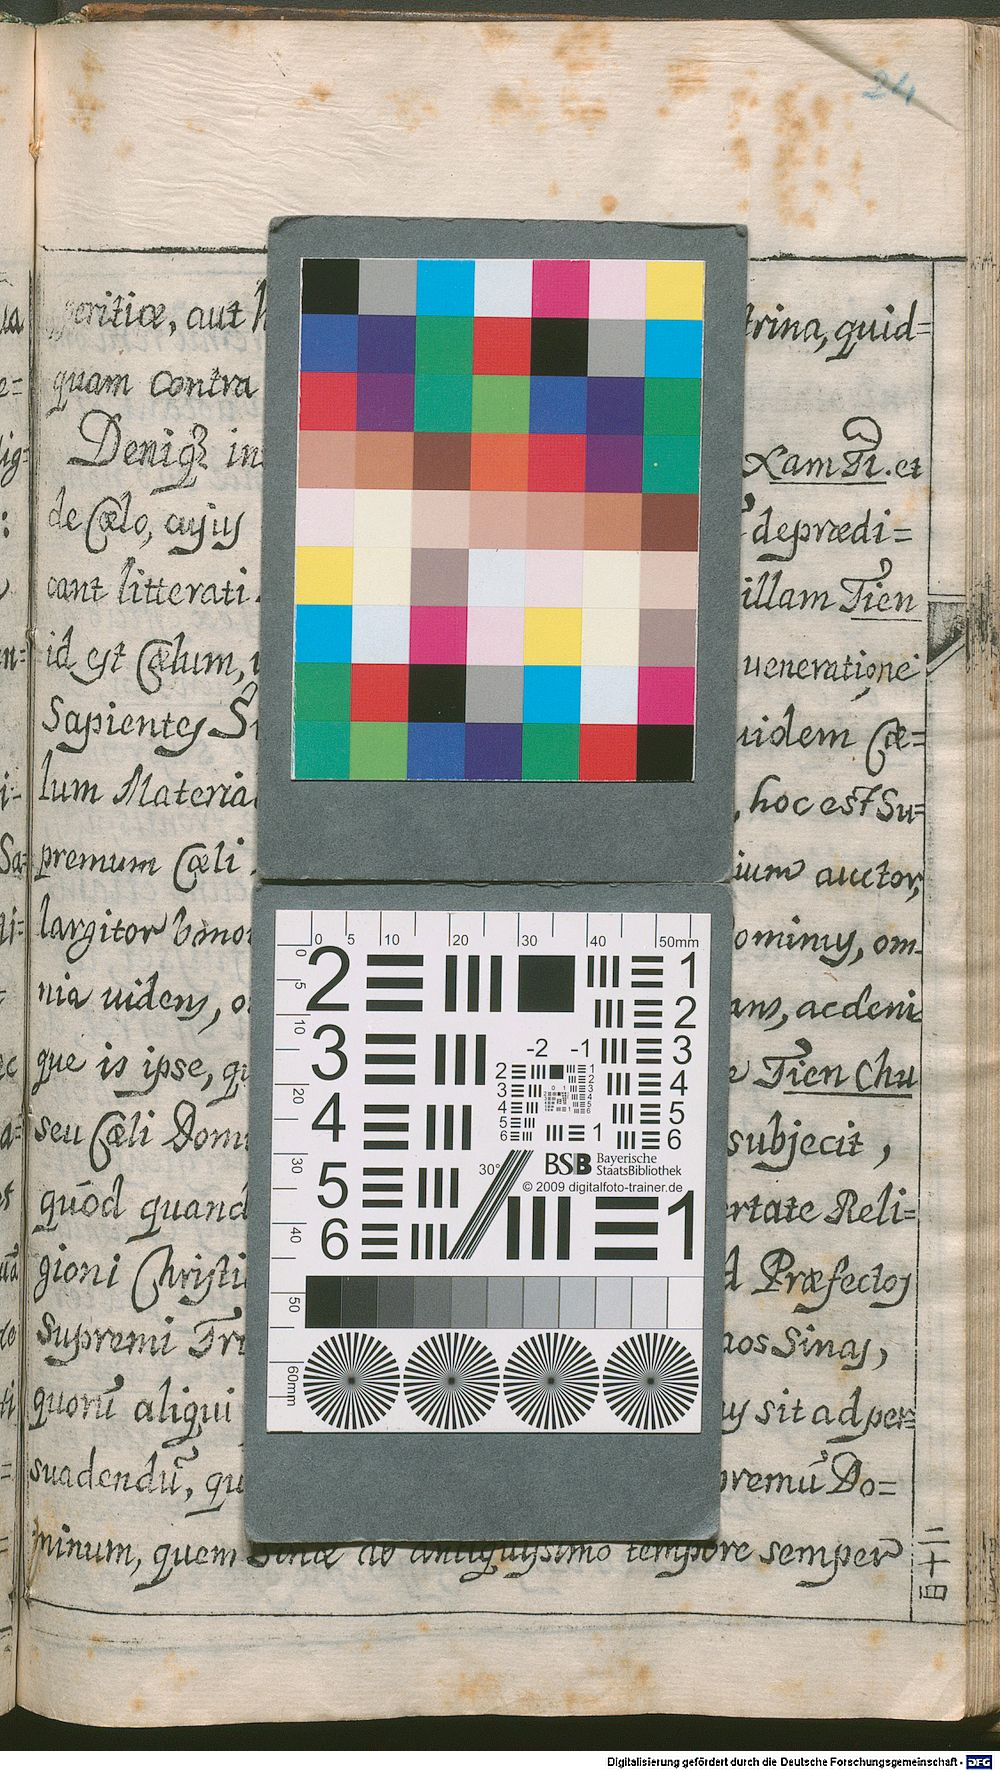 24
peritiæ, aut h trina, quid=
quam contra
Deniqȝ in Xam Tì. et
de Cælo, cujus deprædi=
cant litterati illam Tien
id est Cælum, ueneratione
Sapientes uidem Cæ=
lum Materia , hoc est Su=
premum Cæli ium auctor,
largitor bono ominus, om
nia uidens, o ans, ac deni
que is ipse, qu Tien Chu
seu Cæli Domi subjecit,
quód quand ertate Reli=
gioni Christi d Præfectos
Supremi Tri nos Sinas,
quorū aliqui us sit ad per=
suadendū, qu premū Do=
minum, quem Sinæ ab antiquissimo tempore semper
二十四
0 5 10 20 30 40 50mm
0 5 10 20 30 40 50 60mm
2 3 4 5 6
1 2 3 4 5 6
-2 -1
2 3 4 5 6
1
30°
BSB Bayerische
StaatsBibliothek
© 2009 digitalfoto-trainer.de
1
Digitalisierung gefördert durch die Deutsche Forschungsgemeinschaft - DFG